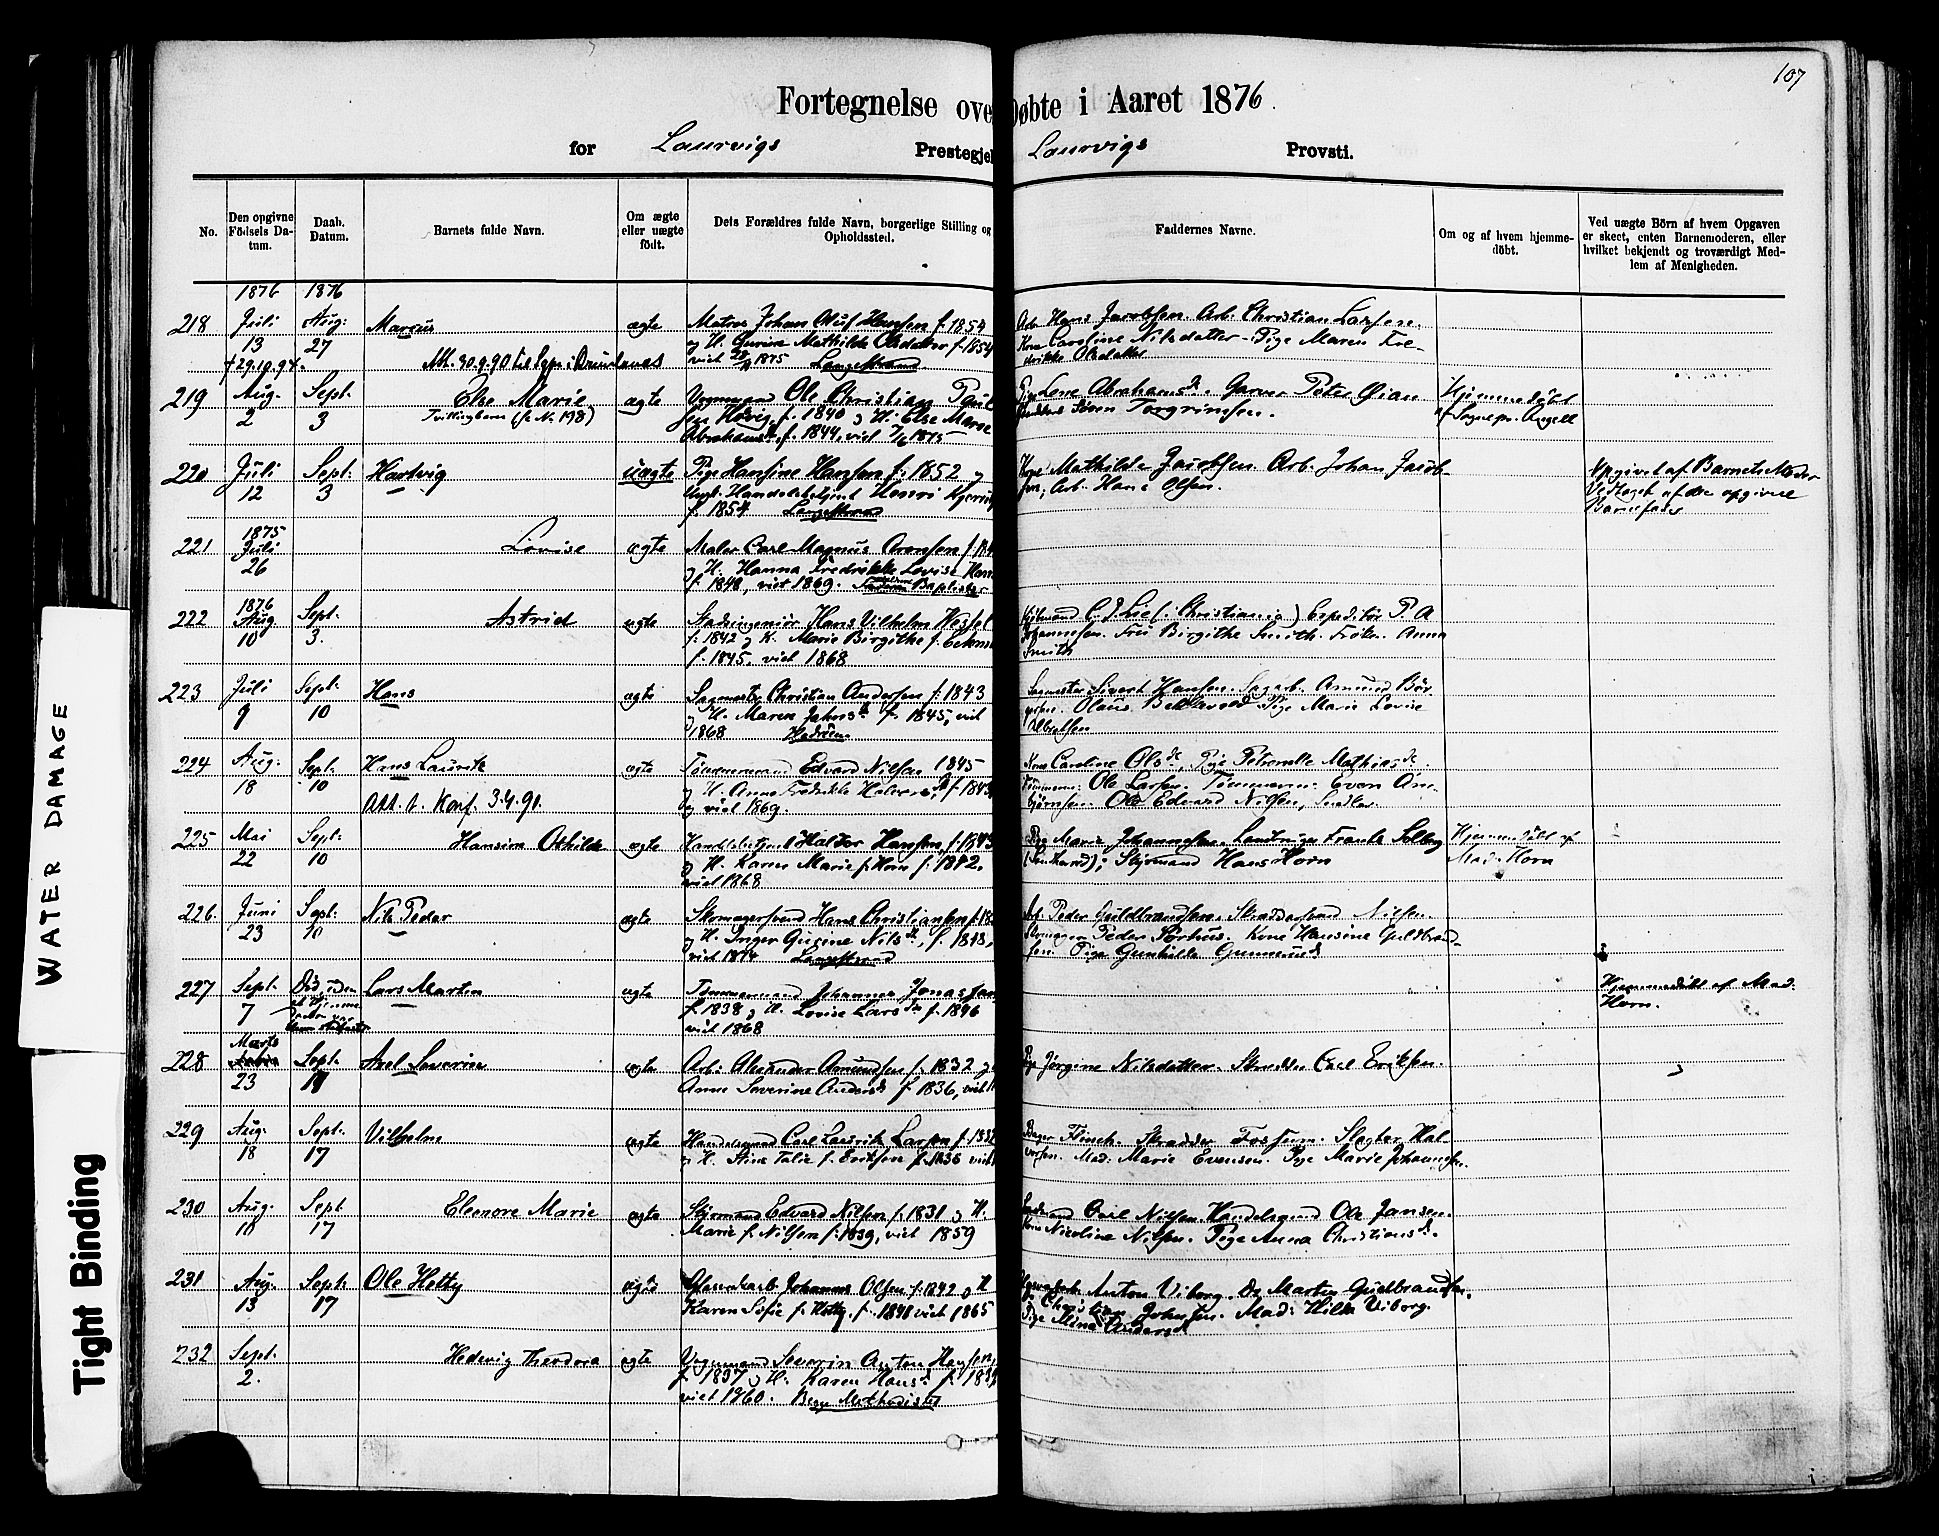 107
Fortegnelse ove Døbte i Aaret 1876.
for Laurvigs Prestegjel Laurvigs Provsti.
No.
Den opgivne Fødsels Datum.
Daab. Datum.
Barnets fulde Navn.
Om ægte eller uægte født.
Dets Forældres fulde Navn, borgerlige Stilling og Opholdssted.
Faddernes Navne.
Om og af hvem hjemmedöbt.
Ved uægte Börn af hvem Opgaven er skeet, enten Barnemoderen, eller hvilket bekjendt og troværdigt Medlem af Menigheden.
1876 1876
218 Juli Aug: Marcus ægte Matros Johan Oluf Hansen f. 1854 Arb Hans Jacobsen. Arb. Christian Larsen.
13 27 og H. Gurine Mathilde Olsdatter f. 1854 Kone Caroline Nilsdatter - Pige Maren Fre-
†29.10.94. Att. 30.9.90 til viet 1875 Langestrand drikke Olsdatter
219 Aug. Sept. Else Marie ægte Vognmand Ole Christian Poul Lene Abrahamsd. Garver Peter Øian Hjemmedöbt
2 3 Tvillingbarn (se No. 198) sen f. 1840 og H. Else Marie Søren Torgrimsen. af Sognepr. Angell
Abrahamsd. f. 1844, viet 7/6 1875
220 Juli Sept: Hartvig uægte Pige Hansine Hansen f. 1852 og Kone Mathilde Jacobsen. Arb. Johan Jacob- Opgivet af Barnets Moder
12 3 Ungk. Handelsbetjent Henri sen, Arb. Hans Olsen. Vedtaget af den opgivne
f. 1854 Langestrand Barnefader
1875
221 Juli Lovise ægte Maler Carl Magnus Arensen
26 og H. Hanna Fredrikke Lovise
f. 1848, viet 1869. Baptister
1876
222 Aug Sept: Astrid ægte Stadsingeniør Hans Vilhelm Wessel Kjøbmand Lie (i Christiania) Expeditør P A
10 3. f. 1842 og H. Marie Birgithe f. Johannsen. Fru Birgithe Smith. Frøken Anna
f. 1845. viet 1868 Smith
223 Juli Sept: Hans ægte Sagmester Christian Andersen f. 1843 Sagmester Sivert Hansen. Sagarb. Amund Bør-
9 10 og H. Maren Jahnsd. f. 1845, viet gesen. Olaus Pige Marie Lovise
1868 Hedrum Albretsen
224 Aug. Sept. Hans Laurits ægte Tømmermand Edvard Nilsen 1845 Kone Caroline Olsd., Pige Petronelle Mathiasd.
18 10 og H. Anne Fredrikke f. 1843 Tømmerm. Ole Larsen. Tømmerm. Even Arn-
Att. t. Konf. 3.4.91. og viet 1869. bjørnsen. Ole Edvard Nilsen, Snedker
225 Mai Sept: Hansine Othilde ægte Handelsbetjent Halvor Hansen, f. 1843 Pige Marie Johannessen. Frants Solberg Hjemmedöbt af
22 10 og H. Karen Marie f. Horn f. 1842. Styrmand Hans Horn Mad. Horn
viet 1868
226. Juni Sept. Nils Peder ægte Skomagersvend Hans Christiansen Arb. Peder Guldbrandsen. Skræddersvend Nilsen.
23 10 og H. Inger Gurine Nilsd., f. 1848, Peder Sørhus. Kone Hansine Guldbrand-
viet 1874 Langestrand sen. Pige Gunhilde
227 Sept. Død, uden Lars Martin ægte Tømmermand Johannes Jonassen Hjemmedöbt af Mad.
7 f. 1838 og H. Lovise Larsdtr f. 1846 Horn.
viet 1868
Marts
228 Sept. Axel Severin ægte Arb: Alexander Amundsen f. 1832 og Pige Jørgine Nilsdatter. Skrædder Carl Eriksen.
23 Anne Severine Andersd. f. 1836, viet
229 Aug. Sept. Vilhelm ægte Handelsmand Carl Laurits Larsen f. 1832 Bager Finch. Skrædder Fossum. Slagter Hal-
18 17 og H. Stine Talie f. Eriksen f. 1836 viet vorsen. Mad. Marie Evensen. Pige Marie Johannessen.
230 Aug. Sept. Elenore Marie ægte Styrmand Edvard Nilsen f. 1831 og H. Carl Nilsen. Handelsmand Ole Jansen.
10 17 Marie f. Nilsen f. 1839, viet 1859 Kone Nicoline Nilsen. Pige Anna Christiansd.
231 Aug. Sept. Ole Hetty ægte Glasværksarb. Johannes Olsen f. 1842 og H Anton Viborg. Do Martin Guldbrandsen.
13 17 Karen Sofie f. Hetty. f. 1841 viet 1865 Christian Johnsen. Mad: Hilda Viborg.
Pige Mina Andersd
232 Sept. Hedevig Theodora ægte Vognmand Severin Anton Hansen,
2. f. 1837 og H. Karen Hansd. f. 1839
viet 1860. Begge Methodister
WATER DAMAGE
Tight Binding